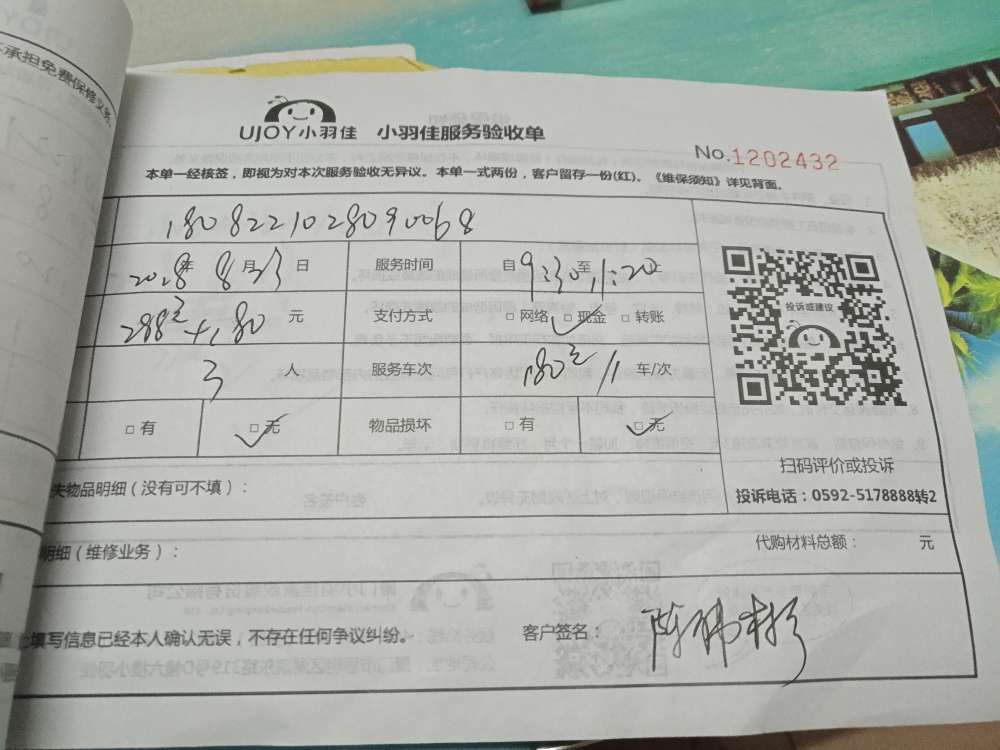 承担免费保修义务
UJOY小羽佳 小羽佳服务验收单
No.1202432
本单一经核签，即视为对本次服务验收无异议。本单一式两份，客户留存一份(红)。《维保须知》详见背面。
1808221028090068
年 8月23日 服务时间 自9:30至11:20
288 +180 元 支付方式 □网络 □现金 □转账
3 人 服务车次 180 11 车/次
□有 □无 物品损坏 □有 □无
投诉或建议
扫码评价或投诉
投诉电话：0592-5178888转2
失物品明细（没有可不填）：
明细（维修业务）： 代购材料总额： 元
上填写信息已经本人确认无误，不存在任何争议纠纷。 客户签名： 陈